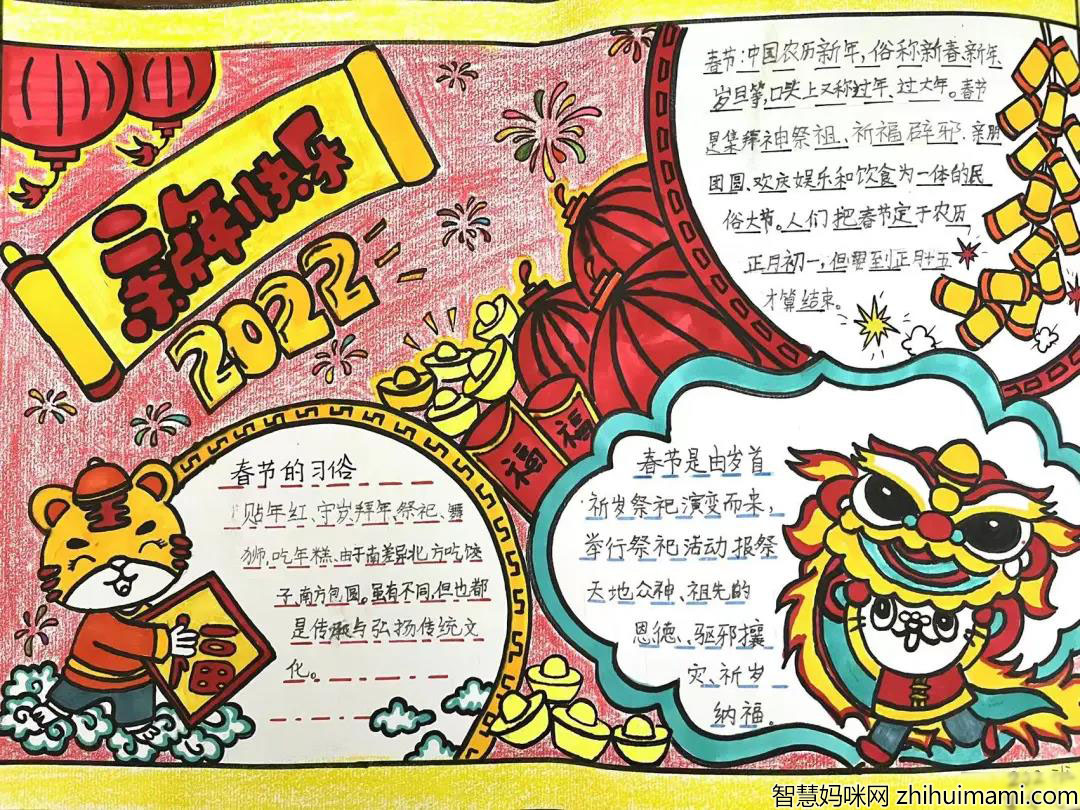 新年快乐
2022
春节:中国农历新年,俗称新春、新年、
岁旦等,口头上又称过年、过大年。春节
是集拜神祭祖、祈福辟邪、亲朋
团圆、欢庆娱乐和饮食为一体的民
俗大节。人们把春节定于农历
正月初一,但要到正月十五
才算结束。
福
福
春节的习俗
贴年红、守岁拜年、祭祀、舞
狮,吃年糕、由于南差异北方吃饺
子,南方包圆。虽有不同,但也都
是传承与弘扬传统文
化。
福
春节是由岁首
祈岁祭祀演变而来,
举行祭祀活动报祭
天地众神、祖先的
恩德、驱邪攘
灾、祈岁
纳福。
智慧妈咪网 zhihuimami.com